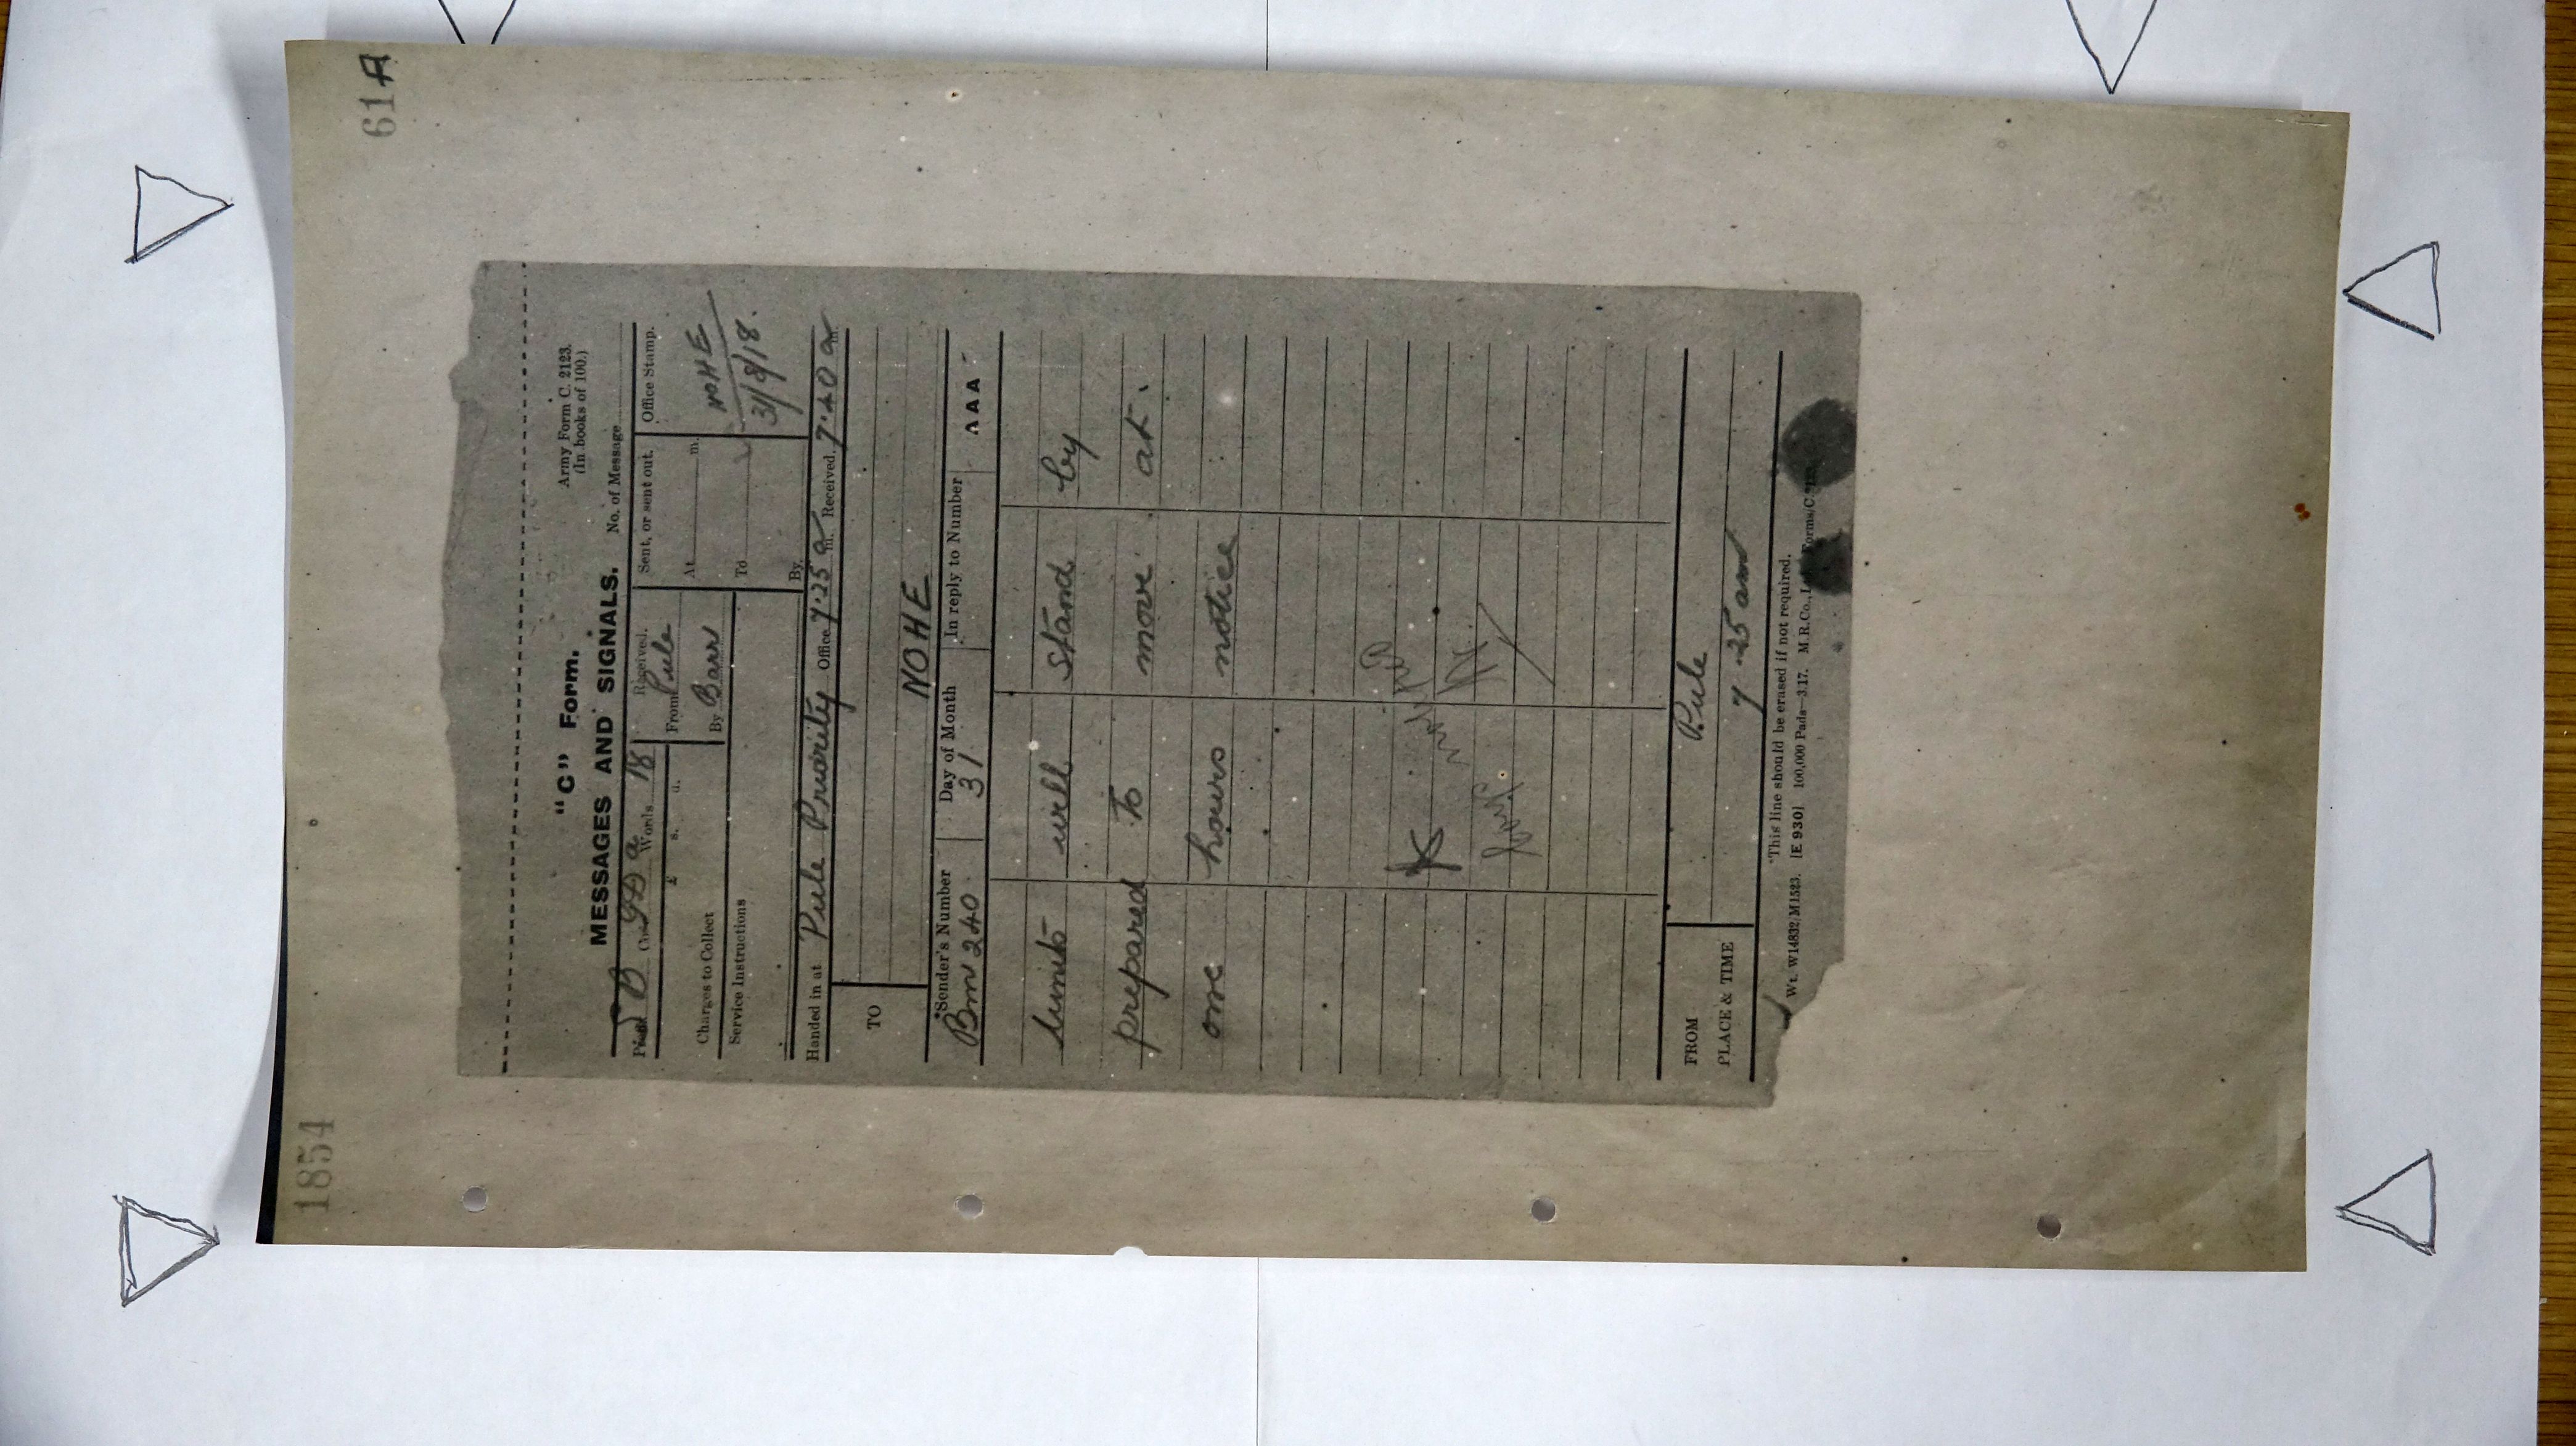 1854
61A
Army Form C. 2123.
(In books of 100.)
"C" Form.
MESSAGES AND SIGNALS. No. of Message
Words 18
Received.
From Pule
By Barr
Sent, or sent out.
At m.
To
By
Office Stamp.
NOHE
31/8/18.
£ s. d.
Charges to Collect
Service Instructions
Handed in at Pule Priority Office 7.25 a m. Received 7.40 a m.
TO
NOHE
*Sender's Number
Bm 240
Day of Month
31
In reply to Number
AAA
Units will stand by
prepared To move at
one hours notice
K
FROM Pule
PLACE & TIME 7.25 am
*This line should be erased if not required.
Wt. W14832/M1523. [E 930] 100,000 Pads—3.17. M.R.Co., Forms/C.